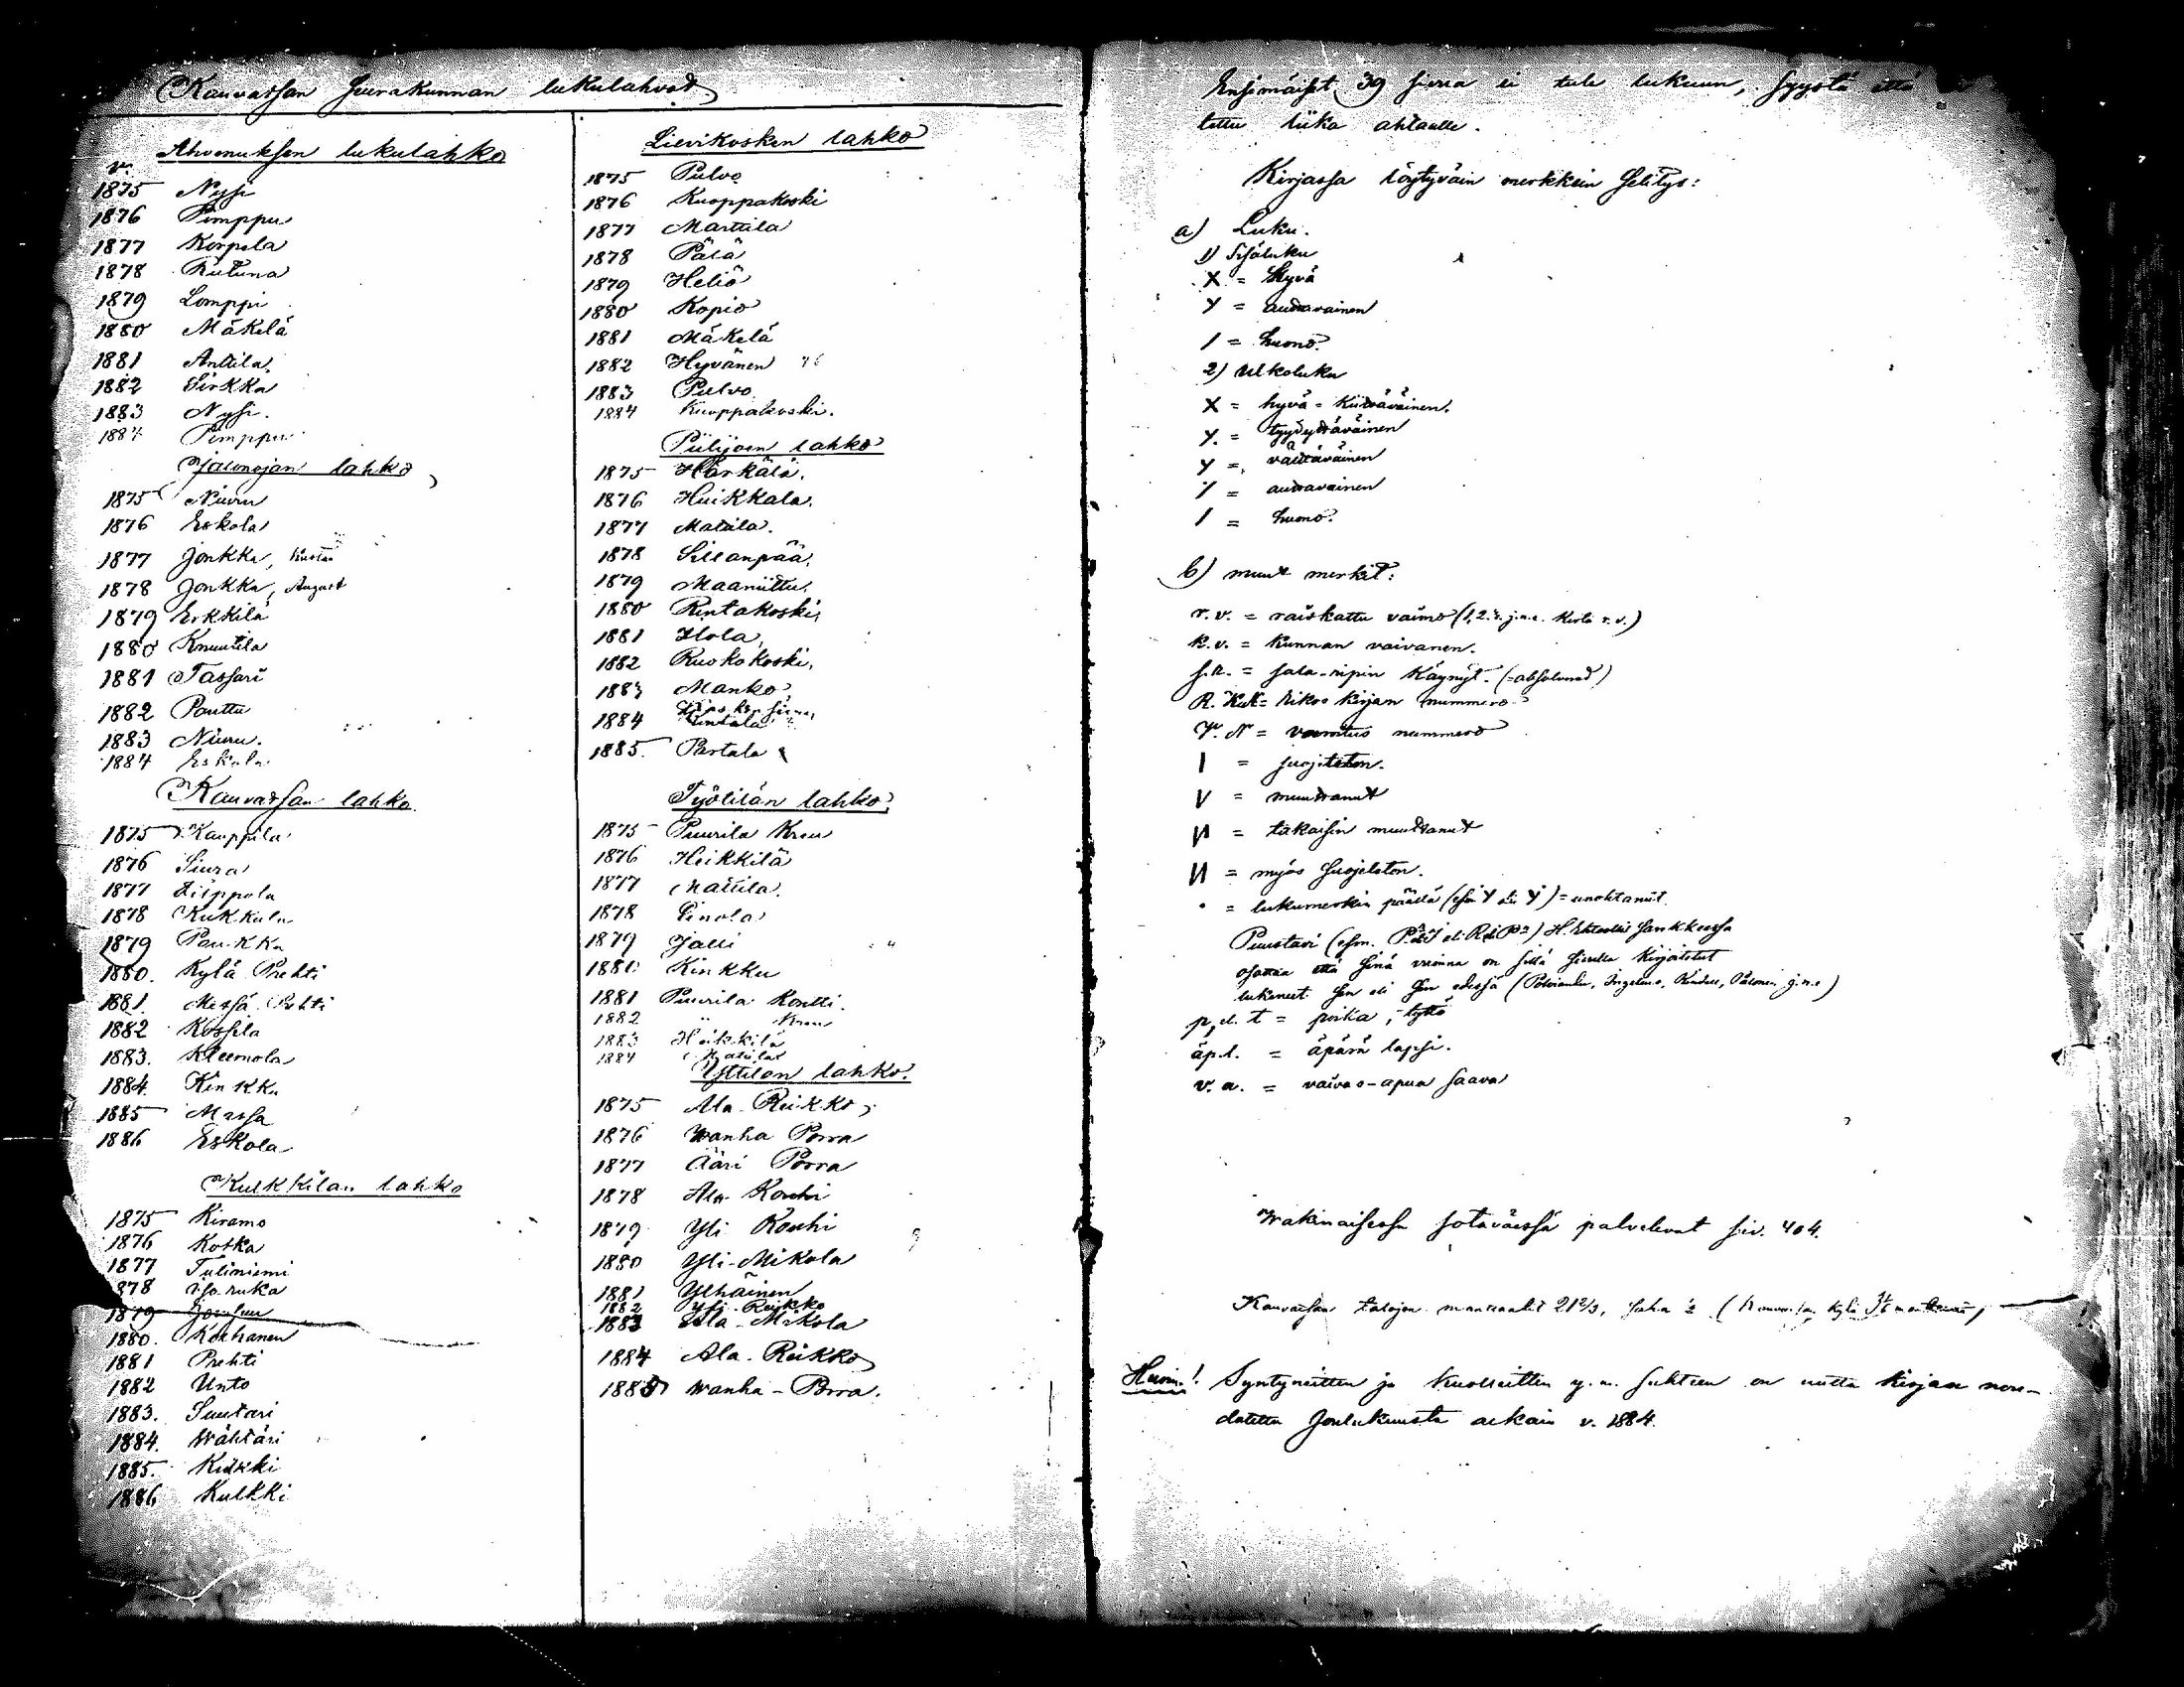 Kauvatsan Seurakunnan lukulahvot
Ahvenuksen lukulahko
v.
1875 Nysi
1876 Pimppu
1877 Korpela
1878 Rutuna
1879 Lomppi
1880 Mäkelä
1881 Anttila
1882 Sirkka
1883 Nysi.
1884 Pimppu
Jalonojan lahko
1875 Niuru
1876 Eskola
1877 Jonkka, Kustaa
1878 Jonkka, August
1879 Erkkilä
1880 Knuutila
1881 Tassari
1882 Panttu
1883 Niuru.
1884 Eskola
Kauvatsan lahko
1875 Kauppila
1876 Siura
1877 Filppola
1878 Kukkula
1879 Paukka
1880. Kylä Prehti
1881. Metsä Prehti
1882 Kossila
1883. Kleemola
1884. Kinkku
1885 Massa
1886 Eskola
Kulkkilan lahko
1875 Kiramo
1876 Kotka
1877 Tuliniemi
878
1879
1880. Kokhanen
1881 Prehti
1882 Unto
1883. Suutari
1884. Wähtäri
1885. Kiukki
1886 Kulkki
Lievikosken lahko
1875 Pulvo
1876 Kuoppakoski
1877 Marttila
1878 Pälä
1879 Heliö
1880 Kopio
1881 Mäkelä
1882 Hyvänen
1883 Pulvo
1884 Kuoppakoski.
Piilijoen lahko
1875 Härkälä.
1876 Huikkala.
1877 Mattila.
1878 Sillanpää.
1879 Maaniittu.
1880 Rintakoski,
1881 Hola,
1882 Ruokokoski,
1883 Manko,
1884 Rintala
1885. Partala
Työtilän lahko
1875 Puurila Kreu
1876 Heikkilä
1877 Mattila.
1878 Pinola
1879 Jalli
1880 Kinkku
1881 Puurila Kontti.
1882 " Kreu
1883 Heikkilä
1884 Mattila
Yttilän lahko.
1875 Ala-Reikko,
1876 Wanha Porra
1877 Ääri Porra
1878 Ala Kouhi
1879 Yli Kouhi
1880 Yli-Mikola
1881 Ylhäinen
1882 Yli-Reikko
1883 Ala-Mikola
1884 Ala-Reikko
1885 Wanha-Porra.
Ensimäiset 39 sivua ei tule lukuun, syystä että
tettu liika ahtaalle.
Kirjassa löytyväin merkkein selitys:
a) Luku.
1) Sisäluku
X = hyvä
Y = auttavainen
/ = huono.
2) Ulkoluku
X = hyvä = kiitettäväinen.
Y. = tyydyttäväinen
Y = välttäväinen
/ = auttavainen
/ = huono.
b) muut merkit:
r.v. = raiskattu vaimo (1, 2. r. j.n.e. kerta r.v.)
k.v. = kunnan vaivanen.
s.r. = sala-ripin käynyt. (=absolverad)
R.K.N = Rikos kirjan nummero
V. N = varoitus nummero
I = suojeton.
V = muuttanut
И = takaisin muuttanut
И = myös suojeloton.
• = lukumerkin päällä (esim Y eli Y) = unohtanut.
Puustavi
osottaa että sinä vuonna on sillä sivulla kirjoitetut
lukeneet sen eli sen edessä
p, el. t = poika, -tyttö
äp.l. = äpärä lapsi.
v.a. = vaivas-apua saava
Wakinaisessa sotaväessä palvelevat siv. 404.
Kauvatsan talojen manttaalit 21 2/3,
Huom.! Syntyneitten ja kuolleitten y.m. suhteen on uutta kirjaa nou-
datettu Joulukuusta aikain v. 1884.